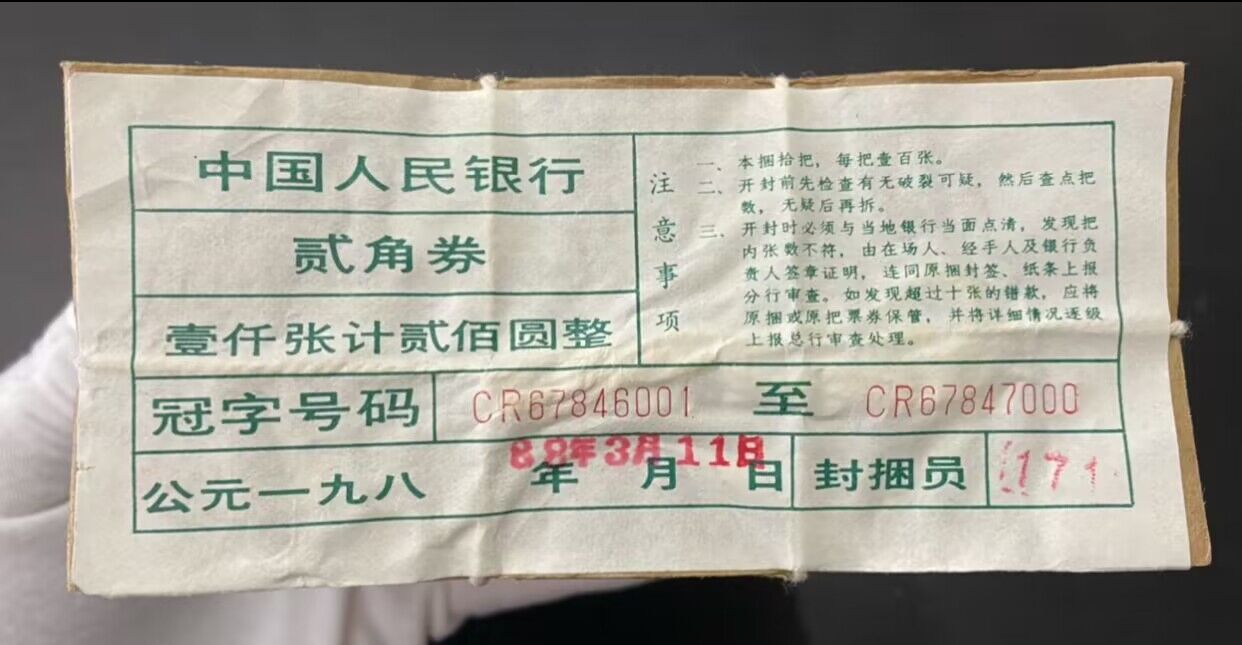 中国人民银行
贰角券
壹仟张计贰佰圆整
注意事项
一、本捆拾把，每把壹百张。
二、开封前先检查有无破裂可疑，然后查点把
数，无疑后再拆。
三、开封时必须与当地银行当面点清，发现把
内张数不符，由在场人、经手人及银行负
责人签章证明，连同原捆封签、纸条上报
分行审查。如发现超过十张的错款，应将
原捆或原把票券保管，并将详细情况逐级
上报总行审查处理。
冠字号码 CR67846001 至 CR67847000
88年3月11日
公元一九八 年 月 日 封捆员 171